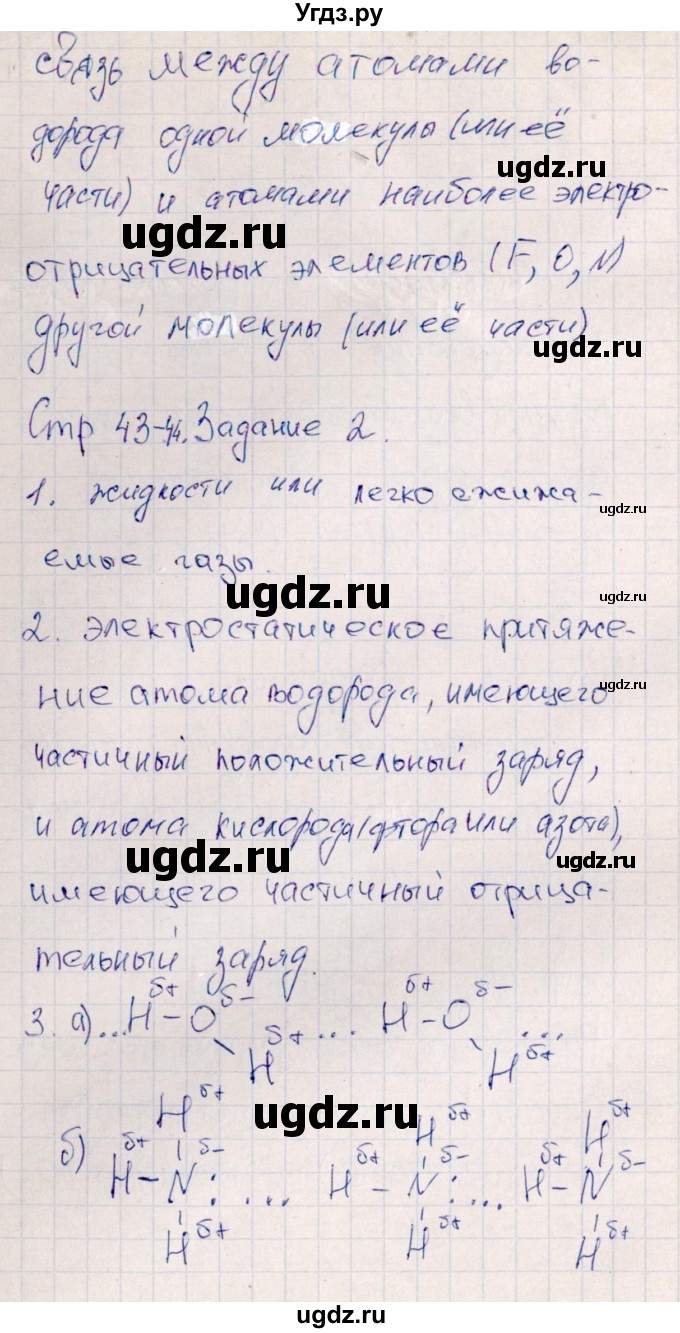 Угдз.ру
связь между атомами во-
дорода одной молекулы (или её
части) и атомами наиболее электро-
ugdz.ru
ugdz.ru
отрицательных элементов (F, O, N)
другой молекулы (или её части)
ugdz.ru
Стр 43-44. Задание 2.
1. жидкости или легко сжижа-
ugdz.ru
емые газы.
ugdz.ru
ugdz.ru
2. Электростатическое притяже-
ние атома водорода, имеющего
ugdz.ru
частичный положительный заряд,
и атома кислорода (фтора или азота),
ugdz.ru
ugdz.ru
имеющего частичный отрица-
тельный заряд.
δ+ δ- δ+ δ-
3. а) ...H-O ... H-O ...
H δ+ H δ+
ugdz.ru
H δ+ H δ+ H δ+
б) δ+ δ- δ+ δ- δ+ δ-
H-N: ... H-N: ... H-N
H δ+ H δ+ H δ+
ugdz.ru
ugdz.ru